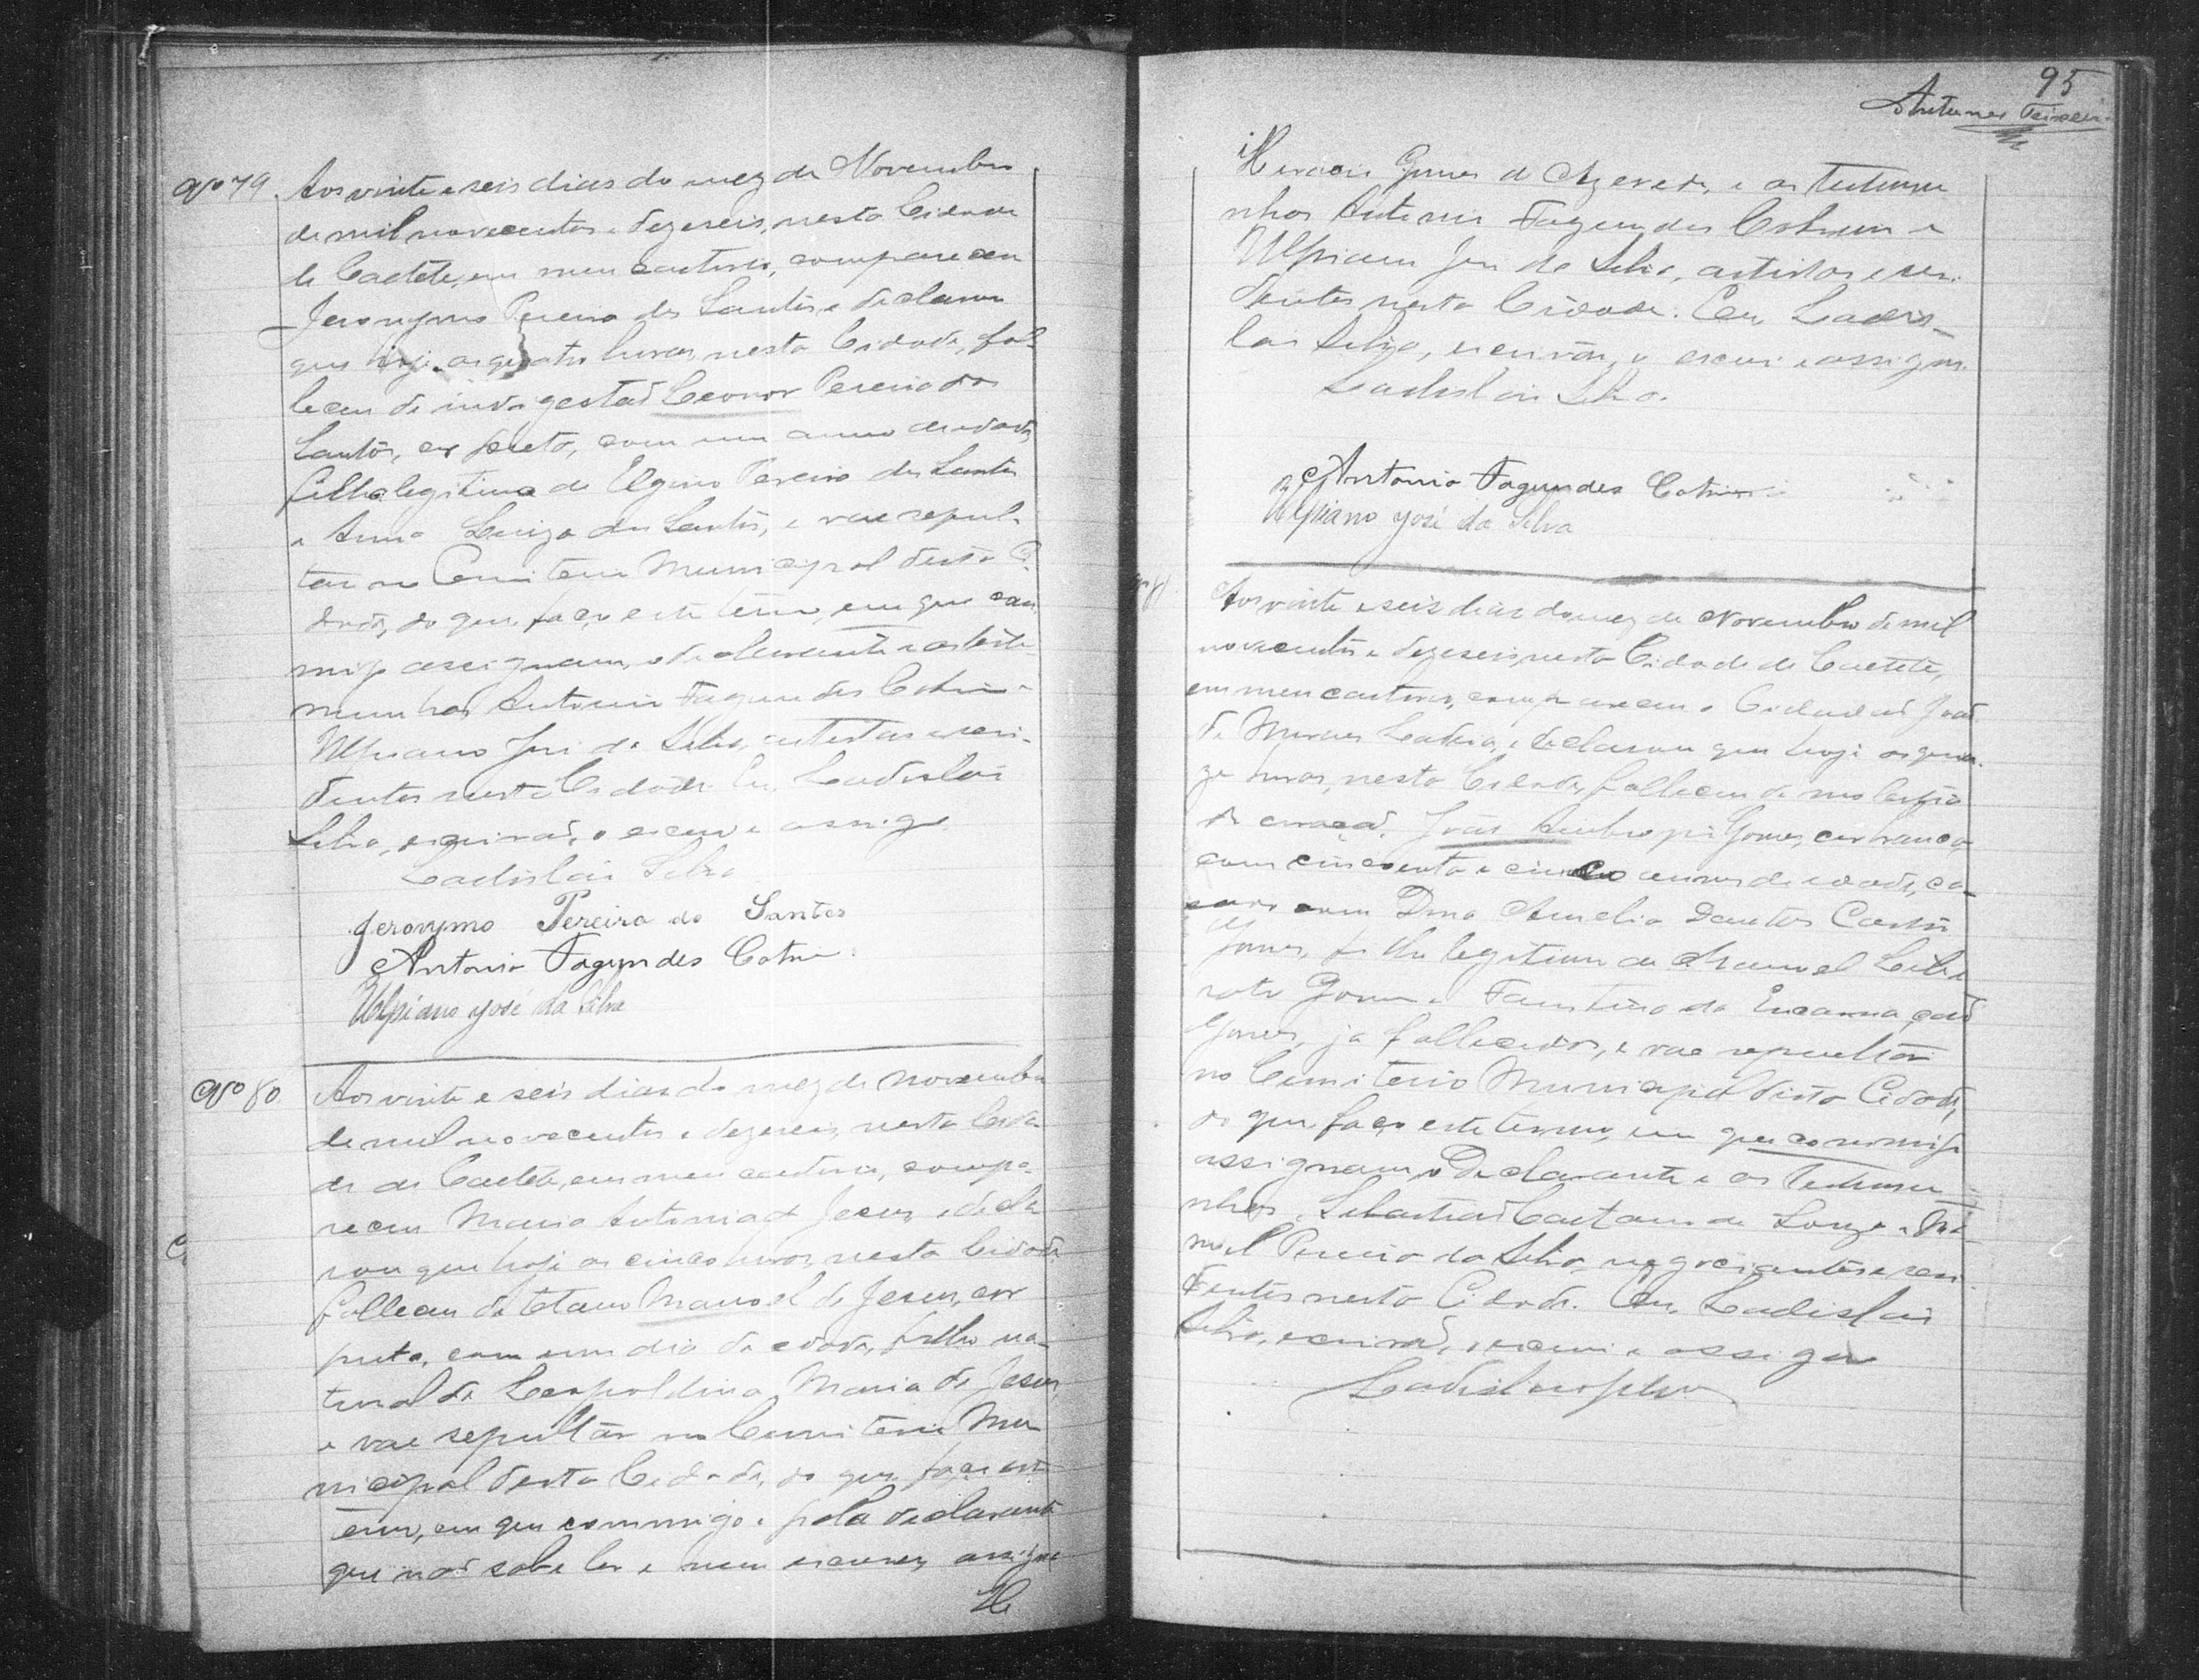 Nº 79. Aos vinte e seis dias do mez de Novembro
de mil novecentos e dezeseis, nesta Cidade
de Caetité, em meu cartorio, compareceu
Jeronymo Pereira dos Santos e declarou
que hoje as quatro horas, nesta Cidade, fal-
leceu de indigestão Leonor Pereira dos
Santos, cor preta, com um anno de idade,
filha legitima de Elgino Pereira dos Santos
e Anna Luiza dos Santos, e vae sepul-
tar no Cemiterio Municipal desta Ci-
dade, do que faço este termo, em que com
migo assignam, o declarante e as teste-
munhas Antonio Fagundes Cotrim e
Ulpiano José da Silva, artistas e resi-
dentes nesta Cidade. Eu, Ladislau
Silva, escrivão, o escrevi e assigno.
Ladislau Silva
Jeronymo Pereira do Santos
Antonio Fagundes Cotrim
Ulpiano José da Silva
Nº 80. Aos vinte e seis dias do mez de novembro
de mil novecentos e dezeseis, nesta Cida-
de de Caetité, em meu cartorio, compa-
receu Maria Antonia de Jesus, e decla-
rou que hoje as cinco horas, nesta Cidade
falleceu de tetano Manoel de Jesus, cor
preta, com um dia de edade, filho na-
tural de Leopoldina Maria de Jesus,
e vae sepultar no Cemiterio Mu-
nicipal desta Cidade, do que faço este
termo, em que commigo e pela declarante
que não sabe ler e nem escrever, assigna
95
Antunes Teixeira
Gomes de Azevedo, e as testemu-
nhas Antonio Fagundes Cotrim e
Ulpiano José da Silva, artistas e resi-
dentes nesta Cidade. Eu, Ladis-
lau Silva, escrivão, o escrevi e assigno.
Ladislau Silva.
Antonio Fagundes Cotrim
Ulpiano José da Silva
Aos vinte e seis dias do mez de Novembro de mil
novecentos e dezeseis, nesta Cidade de Caetité,
em meu cartorio, compareceu o Cidadão João
de e declarou que hoje as quin-
ze horas, nesta Cidade, falleceu de molestia
do coração, João Gomes, cor branca,
com cincoenta e cinco annos de edade, ca-
sado com Dona Amelia Dantas Castro
Gomes, filho legitimo de Manoel Libe-
rato Gomes e Faustina da Encarnação
Gomes, já fallecidos, e vae sepultar
no Cemiterio Municipal desta Cidade,
do que faço este termo, em que commigo
assignam, o Declarante e as testemu-
nhas, Sebastião Caetano de Souza e Ma-
noel Pereira da Silva, negociantes e resi-
dentes nesta Cidade. Eu, Ladislau
Silva, escrivão, o escrevi e assigno
Ladislau Silva